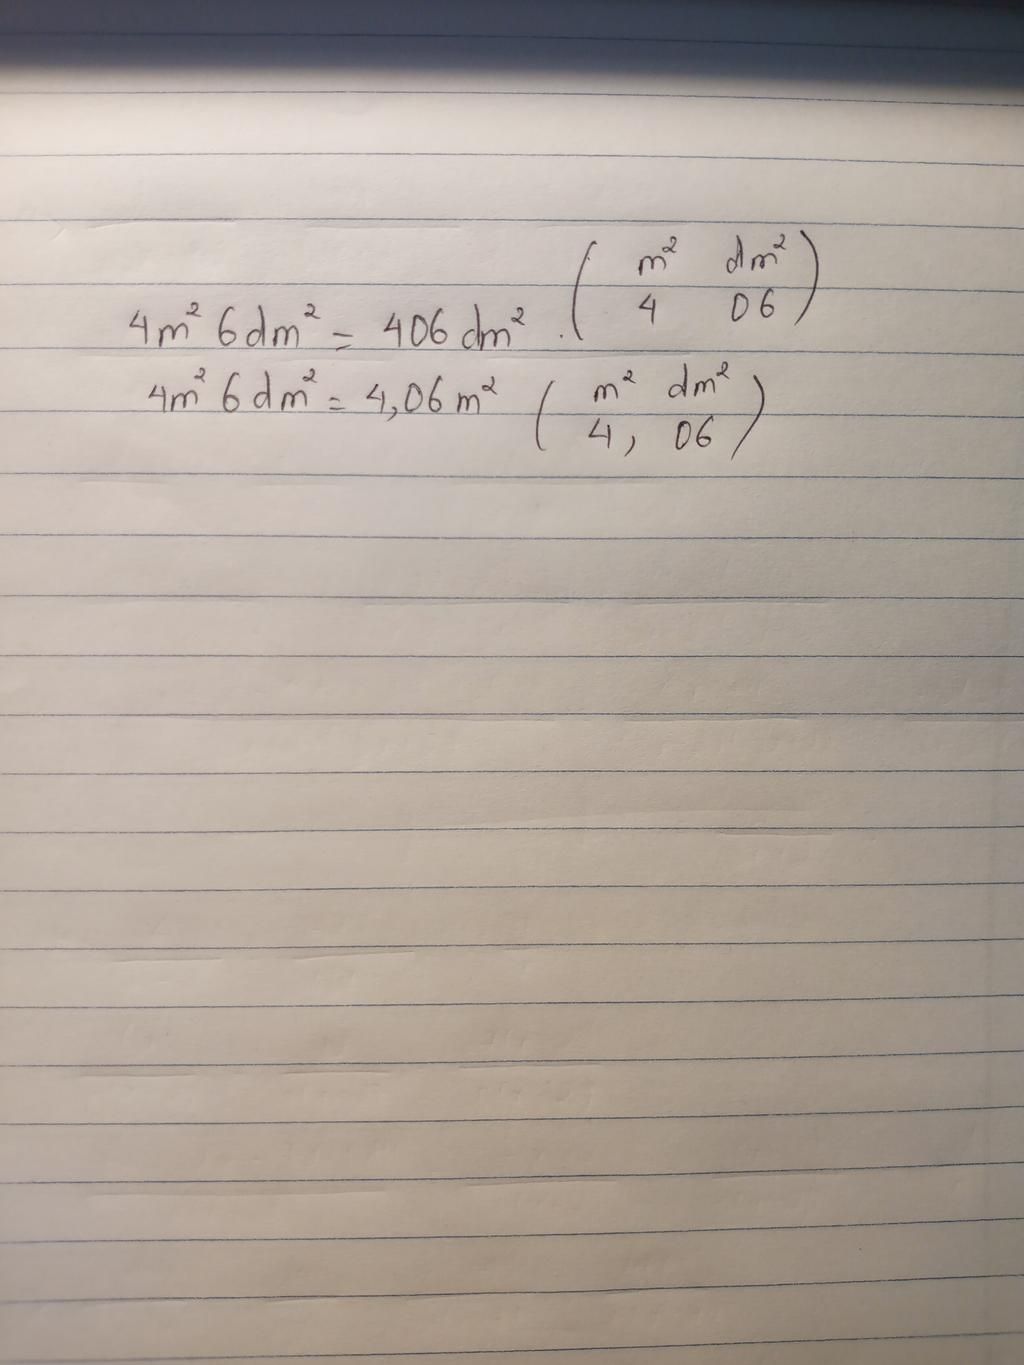 4m² 6dm² = 406 dm² . ( m² dm²
4 06 )
4m² 6dm² = 4,06 m² ( m² dm²
4, 06 )